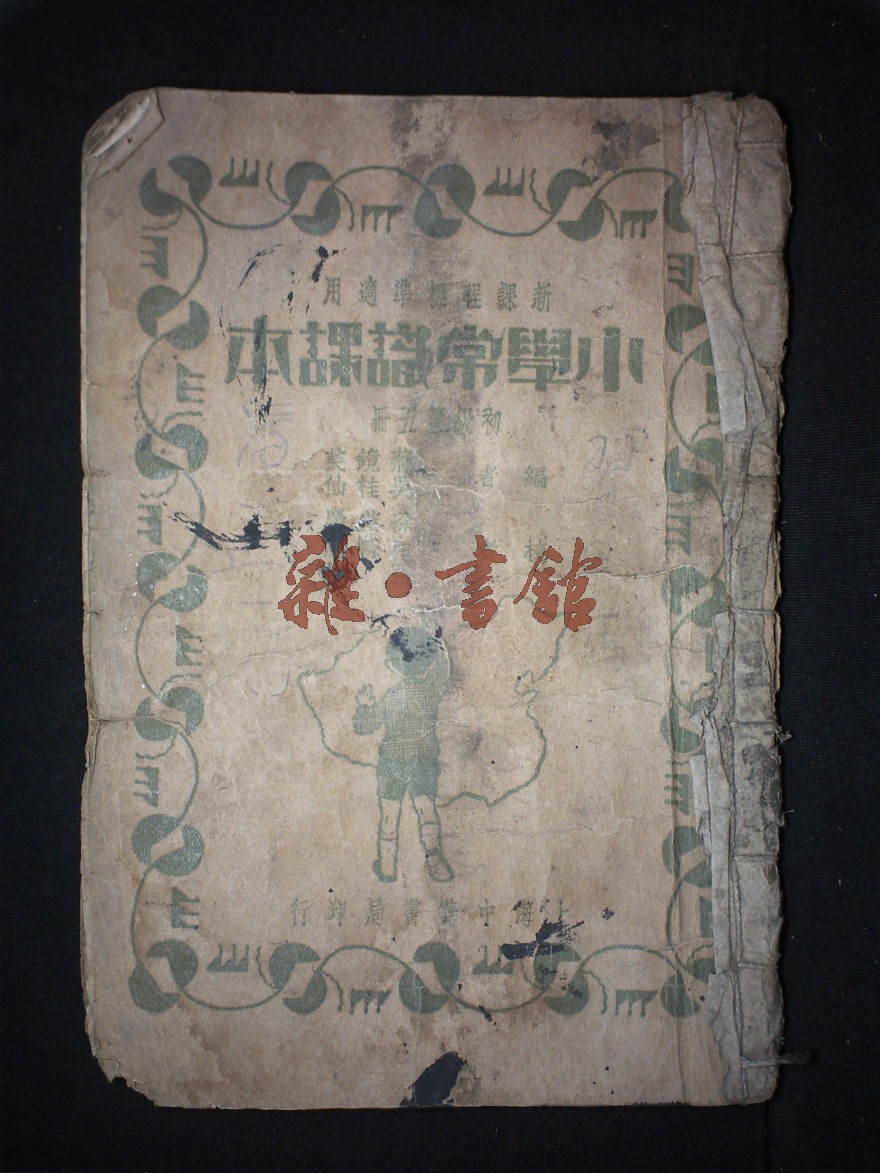 新課程標準適用
小學常識課本
初級第五冊
編者
蔣鏡芙
吳桂仙
雜·書館
上海中華書局印行